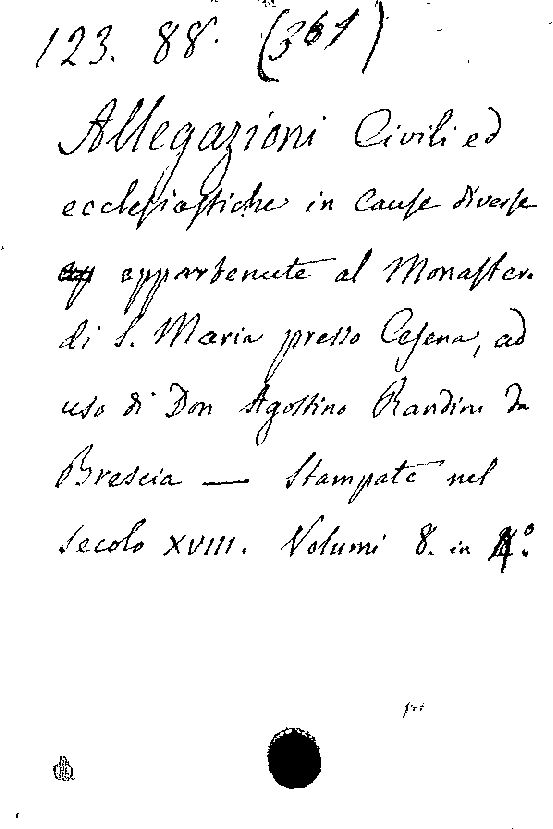 123. 88. (361)
Allegazioni Civili ed
ecclesiastiche in cause diverse
appartenute al Monaster.
di S. Maria presso Cesena, ad
uso di Don Agostino Randini da
Brescia — Stampate nel
secolo XVIII. Volumi 8. in 4.º